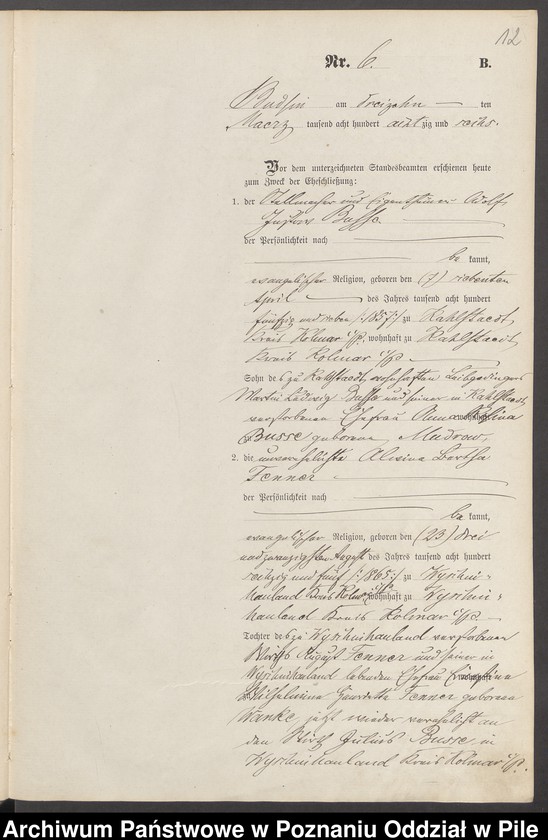 12
Nr. 6. B.
Budsin am dreizehn ten
Maerz tausend acht hundert achtzig und sechs.
Vor dem unterzeichneten Standesbeamten erschienen heute
zum Zweck der Eheschließung:
1. der Stellmacher und Eigenthümer Adolf
Gustav Busse
der Persönlichkeit nach
bekannt,
evangelischer Religion, geboren den (7) siebenten
April des Jahres tausend acht hundert
fünfzig und sieben /:1857:/ zu Kahlstaedt,
Kreis Kolmar i/P., wohnhaft zu Kahlstaedt
Kreis Kolmar i/P.
Sohn des zu Kahlstaedt, wohnhaften Leibgedingers
Martin Ludwig Busse und seiner in Kahlstaedt,
verstorbenen Ehefrau Anna wohnhaft
zu Busse geborene Mudrow,
2. die unverehelichte Alwine Bertha
Fenner
der Persönlichkeit nach
bekannt,
evangelischer Religion, geboren den (23) drei
und zwanzigsten August des Jahres tausend acht hundert
sechzig und fünf /:1865:/ zu
hauland Kreis Kolmar i/P. wohnhaft zu
hauland Kreis Kolmar i/P.
Tochter des zu verstorbenen
Wirths August Fenner und seiner in
lebenden Ehefrau wohnhaft
zu Wilhelmine Henriette Fenner geborene
Wanke, jetzt wieder verehelicht an
den Wirth Julius Busse in
Kreis Kolmar i/P.
Archiwum Państwowe w Poznaniu Oddział w Pile